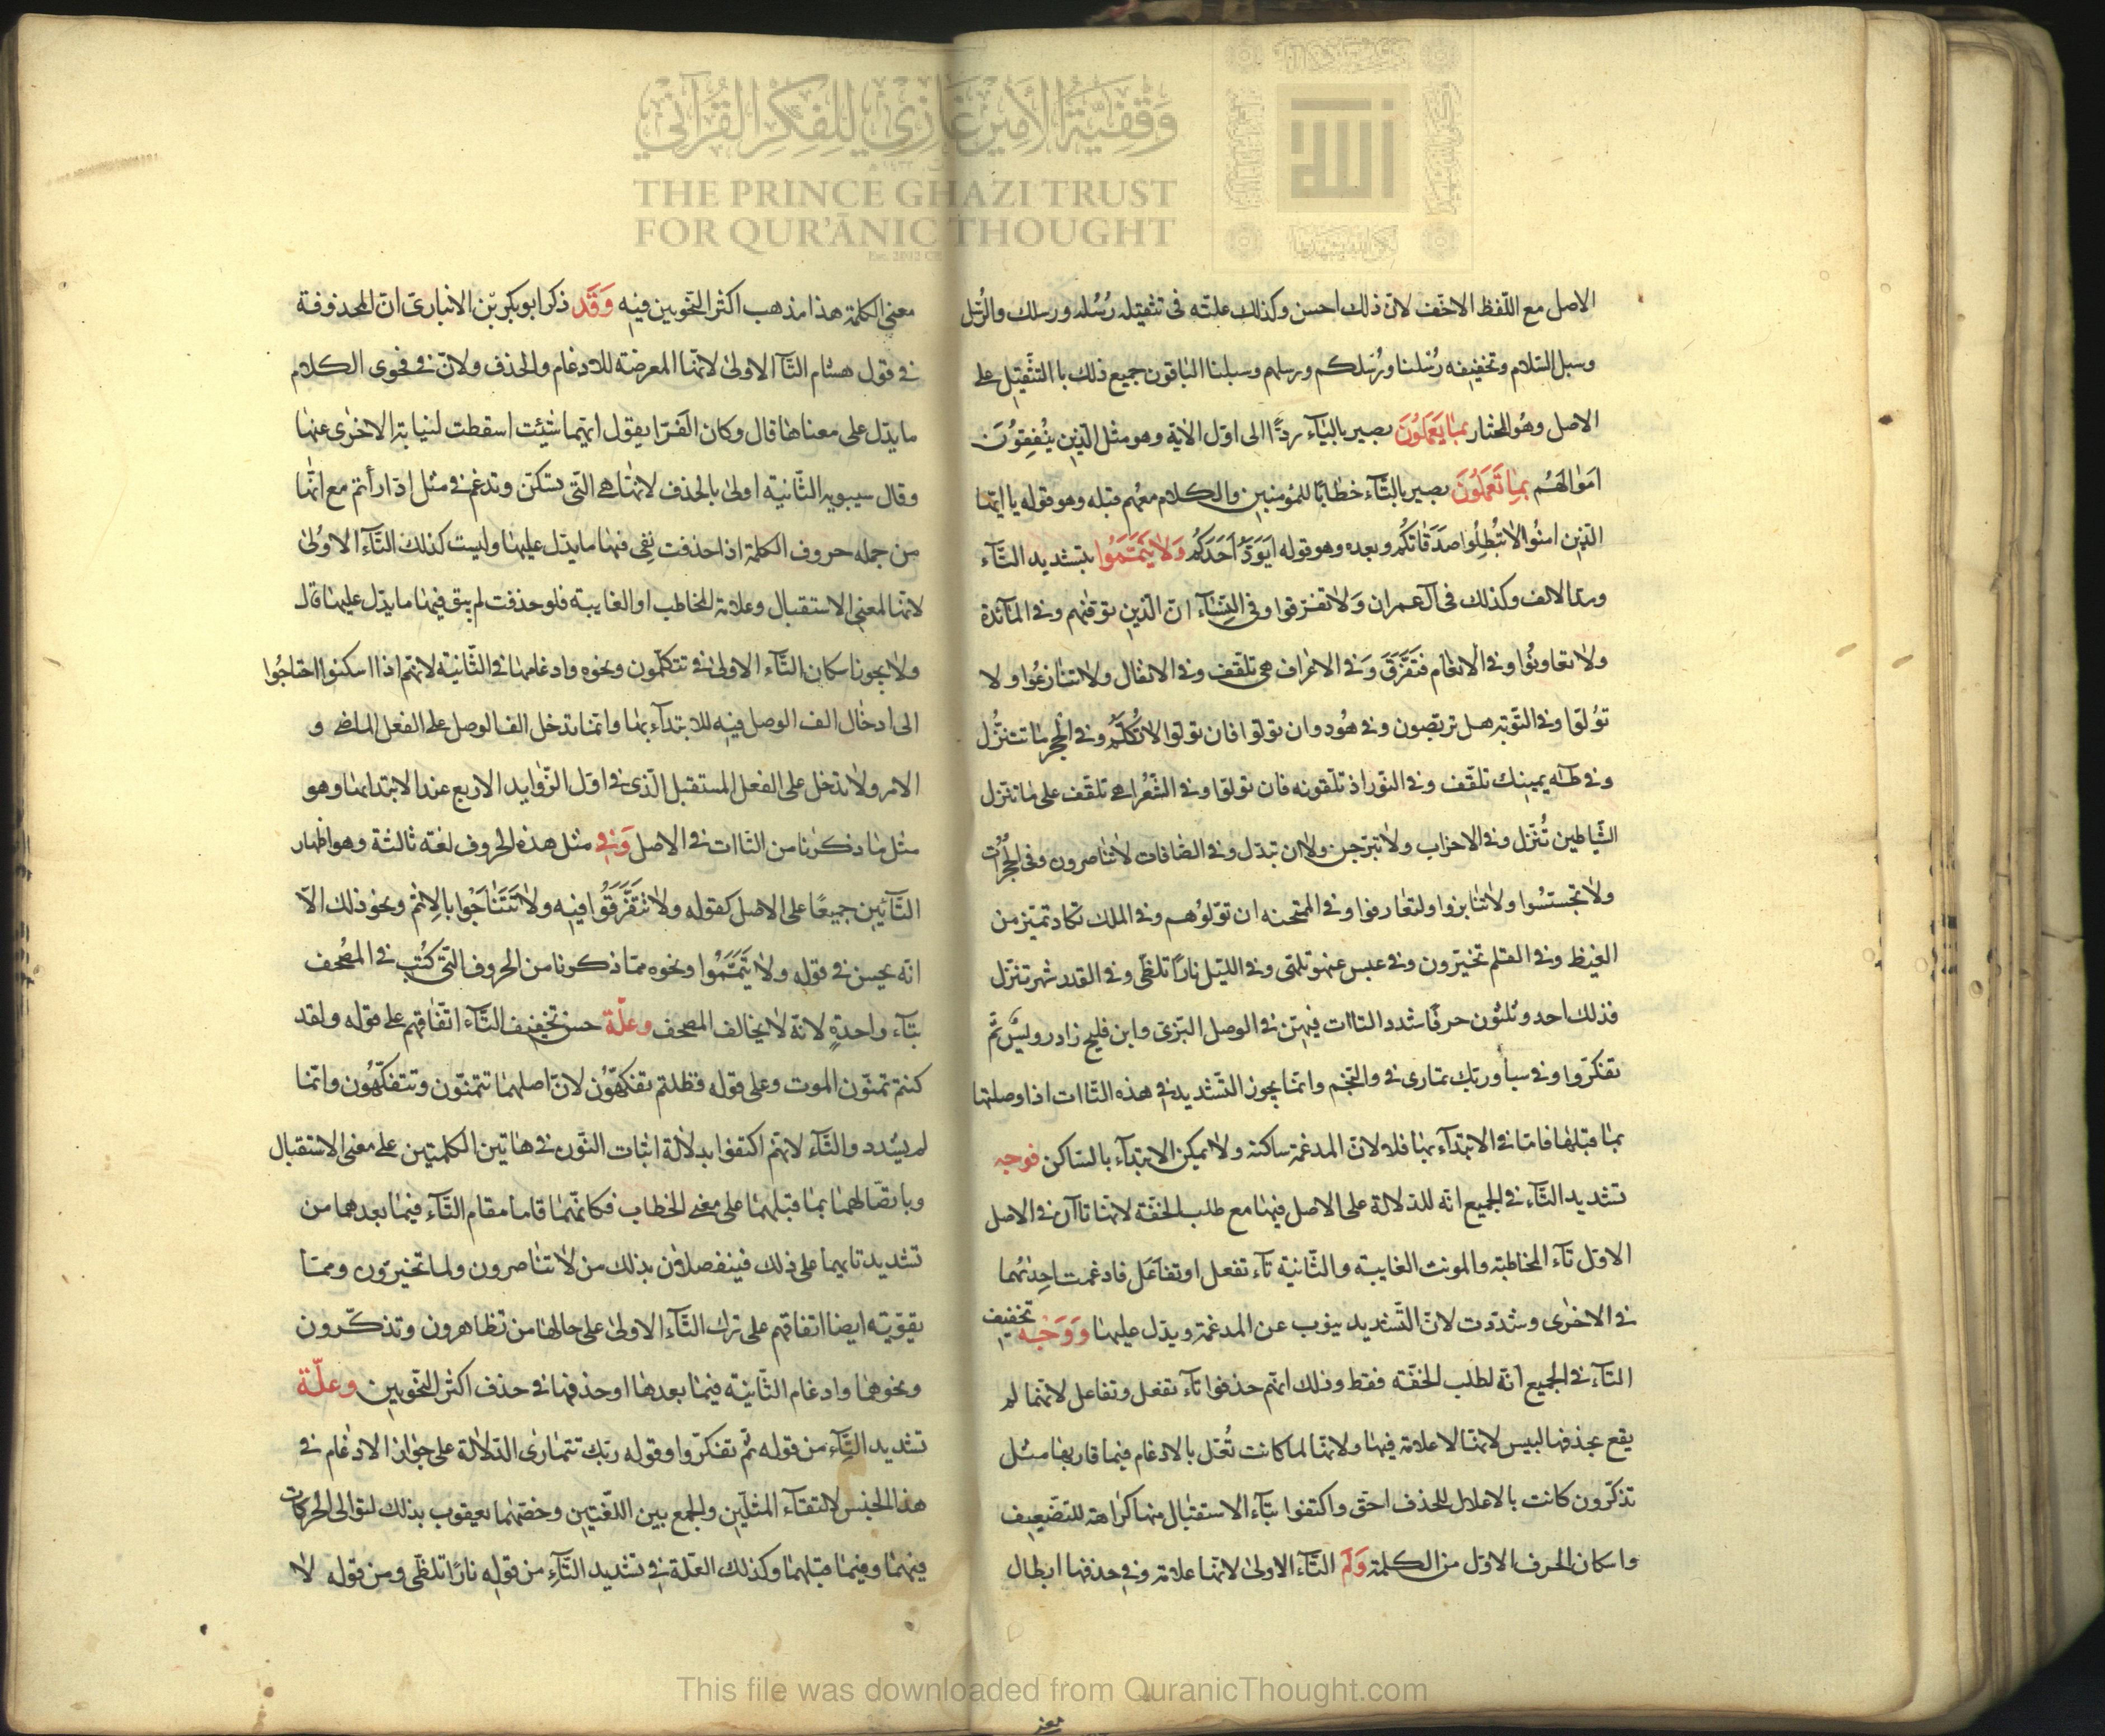 وَقْفِيَّةُ الأَمِيرْ غَازِي لِلْفِكْرِ القُرْآنِيِّ
THE PRINCE GHAZI TRUST
FOR QUR'ĀNIC THOUGHT
Est. 2012 CE
الله
الاصل مع اللّفظ الاخف لانّ ذلك احسن وكذلك علّته فى تثقيله رُسُله ورسلك والرُّسل
وسبل السّلام وتخفيفه رُسْلنا ورُسْلكم ورسلهم وسبلنا الباقون جميع ذلك با التّثقيل على
الاصل وهُو المختار بمَا يَعمَلوُنَ بصير بالياء ردّاً الى اوّل الاية وهو مثل الّذين ينُفِقِوُنَ
امَوٰالهُم بمِا تَعمَلوُنَ بصير بالتّاء خطابًا للمؤمنين والكلام معهم قبله وهو قوله يا ايّها
الّذين امنُوا لاٰ تُبطِلُوا صدَقَاتكُم وبعده وهو قوله اَيَوَدُّ اَحَدكُم وَلاٰ تَيَمّمَوُا بتشديد التّاء
وربما الالف وكذلك فى آل عمران وَلاٰ تفرّقوا وفى النّسٰاء انّ الّذين توفّٰهم وفى المآئدة
ولاٰ تعاونوُا وفى الانعٰام فتَفَرَّقَ وَفى الاعراف هى تلقّف وفى الانفٰال ولاٰ تنٰازعُوا ولا
توُلّوا وفى التّوبة هل تربّصون وفى هُود وان تولّوا فان تولّوا لاٰ تكلّمُ وفى الحِجر مٰا تتنزُّل
وفى طٰه يمينك تلقّف وفى النّور اذ تلّقونه فان تولّوا وفى الشّعرا هى تلقّف على مٰا تنزل
الشّياطين تُنّزل وفى الاحزاب ولاٰ تبرّجن ولاٰ ان تبدّل وفى الصّافات لاٰ تنٰاصرون وفى الحُجُرات
ولاٰ تجسّسُوا ولاٰ تنٰابزوا ولتعٰارفوا وفى الممتحنه ان توّلوُهم وفى الملك تكاد تميّز من
الغيظ وفى القلم تخيّرون وفى عبس عنهو تلهّى وفى اللّيل نارًا تلظّى وفى القدر شهر تنزّل
فذلك احد وثلثون حرفًا شدد التاات فيهنّ فى الوصل البزّى وابن فليح زاد رويسٌ ثمّ
تفكرّوا وفى سبأ وربّك تمارى فى والنّجم وانّما يجوز التّشديد فى هذه التاات اذا وصلتها
بمٰا قبلهٰا فامّا فى الابتدآء بهٰا فلا لانّ المدغمة ساكنة ولاٰ يمكن الابتدآء بالسّاكن فوجه
تشديد التّاء فى الجميع انّه للدّلالة على الاصل فيهٰا مع طلب الخفّة لانّهٰا تاآن فى الاصل
الاوّل تآء المخاطبة والمونث الغايبة والثّانية تآء تفعل او تفاعَل فادغمت احِديٰهُما
فى الاخرٰى وشدّدت لانّ التّشديد ينوب عن المدغمة ويدّل عليهٰا وَوَجْه تخفيف
التآء فى الجميع انّه لطلب الخفّة فقط وذلك انهّم حذفوا تآء تفعل وتفاعل لانّهٰا لم
يقع بحذفها لبيس لانّهٰا لا علامة فيهٰا ولانّهٰا لما كانت تُعَل بالادغام فيما قاربهٰا مثل
تذكّرون كانت بالاعلال للحذف احقّ واكتفوا بتآء الاستقبٰال منهٰا كراهة للتضعيف
واسكان الحرف الاوّل من الكلمة وَلَم التّاء الاولىٰ لانّهٰا علامة وفى حذفها ابطال
معنى
معنى الكلمة هذا مذهب اكثر النّحويين فيه وَقَد ذكر ابو بكر بّن الانبارىّ انّ المحذوفة
فى قول هشام التّآ الاولىٰ لانّهٰا المعرضة للادغام والحذف ولانّ فى فحوى الكلام
ما يدّل على معناهٰا قال وكان الفَرّا يقول ايّتهما شئت اسقطت لنيابة الاخرٰى عنهٰا
وقال سيبويه الثّانية اولىٰ بالحذف لانهٰا هى التّى تسكن وتدغم فى مثل ادّارأتم مع انّهٰا
من جمله حروف الكلمة اذا حذفت بقى فيهٰا ما يدّل عليهٰا وليست كذلك التّآء الاوُلىٰ
لانّهٰا لمعنى الاستقبال وعلامة المخاطب او الغايبة فلو حذفت لم يبق فيهٰا ما يدّل عليهٰا قال
ولاٰ يجوز اسكان التّاء الاولىٰ فى تتكلّمون ونحوه وادغامهٰا فى الثّانية لانهّم اذا اسكنوا احتاجُوا
الى ادخٰال الف الوصل فيه للابتدآء بهٰا وانمّا تدخل الف الوصل على الفعل الماضى و
الامر ولاٰ تدخل على الفعل المستقبل الّذى فى اوّل الزّوايد الاربع عند الابتدا بمٰا وهو
مثل مٰا ذكرنا من التاات فى الاصل وَفى مثل هذه الحروف لغة ثالثة وهو اظهار
التّآئين جميعًا على الاصل كقوله ولاٰ تتَفَرَّقُوا فيه ولاٰ تتَنَاجَوْا بالاِثم ونحو ذلك الاّ
انّه يحسن فى قوله ولاٰ تَيَمّمَوُا ونحوه ممّا ذكرنا من الحروف التّى كُتُب فى المصُحف
بتآء واحدةٍ لانّه لاٰ يخالف المصحف وعلّة حسن تخفيف التّآء اتّفاقهم على قوله ولقد
كنتم تمنّون الموت وعلى قوله فظلتم تفكهّوُن لانّ اصلهمٰا تتمنّون وتتفكّهُون وانمّا
لم يشدد والتّاء لانهّم اكتفوا بدلاٰلة اثبات النّون فى هاتين الكلمتين على معنى الاستقبال
وباتصّالهمٰا بمٰا قبلهمٰا على معنى الخطاب فكانّهمٰا قاما مقام التّآء فيمٰا بعدهما من
تشديد تاييما على ذلك فينفصلان بذلك من لاٰ تنٰاصرون ولما تخيرّون وممّا
يقوّيه ايضا اتفاقهم على ترك التّآء الاولىٰ على حالهٰا من تظاهرون وتذكّرون
ونحوهمٰا وادغام الثّانية فيمٰا بعدهٰا او حذفهٰا فى حذف اكثر النّحويين وعلّة
تشديد التّاء من قوله ثمّ تفكرّوا وقوله ربّك تتمٰارٰى الدّلالة على جوٰاز الادغام فى
هذا الجنس لالتقآء المثلين والجمع بين اللّغتين وخصّهمٰا يعقوب بذلك لتوالى الحركات
فيهمٰا وفيمٰا قبلهمٰا وكذلك العّلة فى تشديد التّآء من قوله نارًا تلظّى ومن قوله لاٰ
This file was downloaded from QuranicThought.com